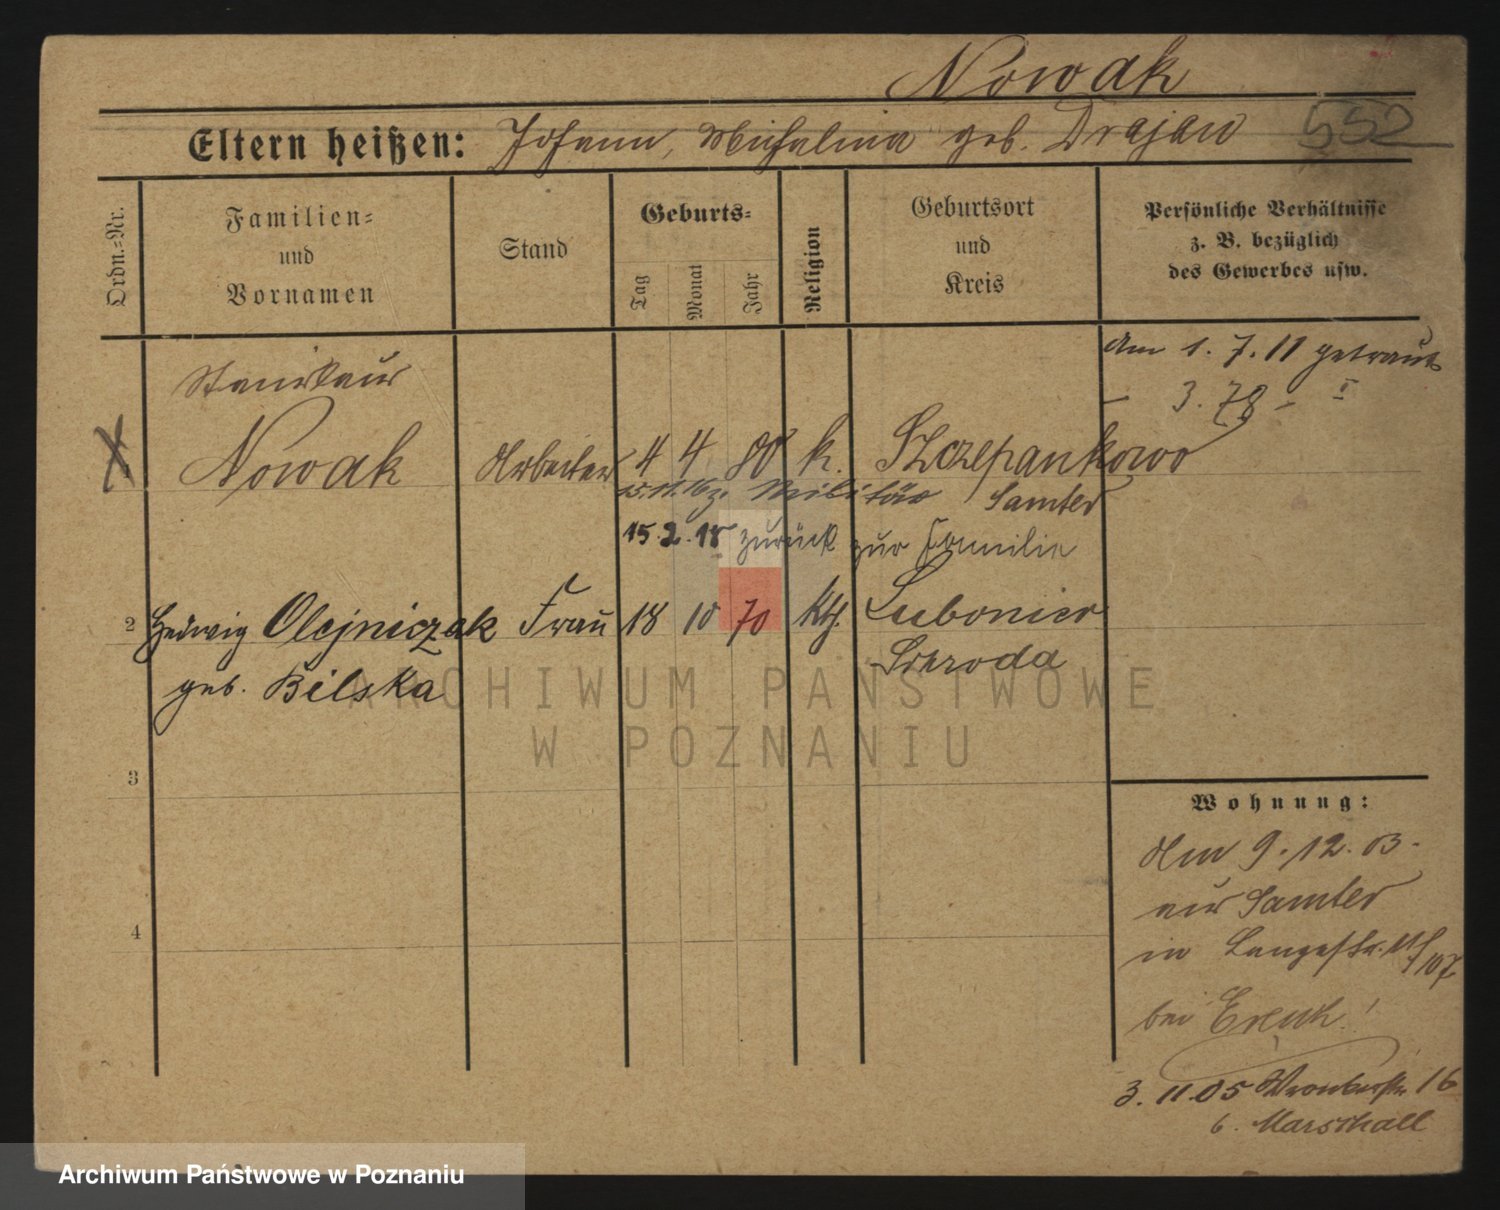 Nowak
Eltern heißen: Johann, Michalina geb. Drajaw
552
Ordn.=Nr.
Familien=
und
Vornamen
Stand
Geburts=
Tag
Monat
Jahr
Religion
Geburtsort
und
Kreis
Persönliche Verhältnisse
z. B. bezüglich
des Gewerbes usw.
Am 1. 7. 11 getraut
- 3. 78 -
Stanislaus
Nowak Arbeiter 4 4 80 k. Szczepankowo
Militär Samter
15.2.18 zurück zur Familie
2 Hedwig Olejniczak Frau 18 10 70 kth. Lubonier
geb. Bilska Schroda
3
4
Wohnung:
Am 9. 12. 03.
aus Samter
in Langestr. 11/
107
bei
3. 11. 05 Wronkerstr. 16
b. Marschall
ARCHIWUM PAŃSTWOWE
W POZNANIU
Archiwum Państwowe w Poznaniu